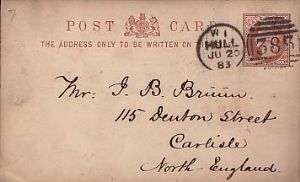 POST CARD
THE ADDRESS ONLY TO BE WRITTEN ON
W1
HULL
JU 20
83
383
Mr. J. B. Brüün.
115 Denton Street
Carlisle
North-England.